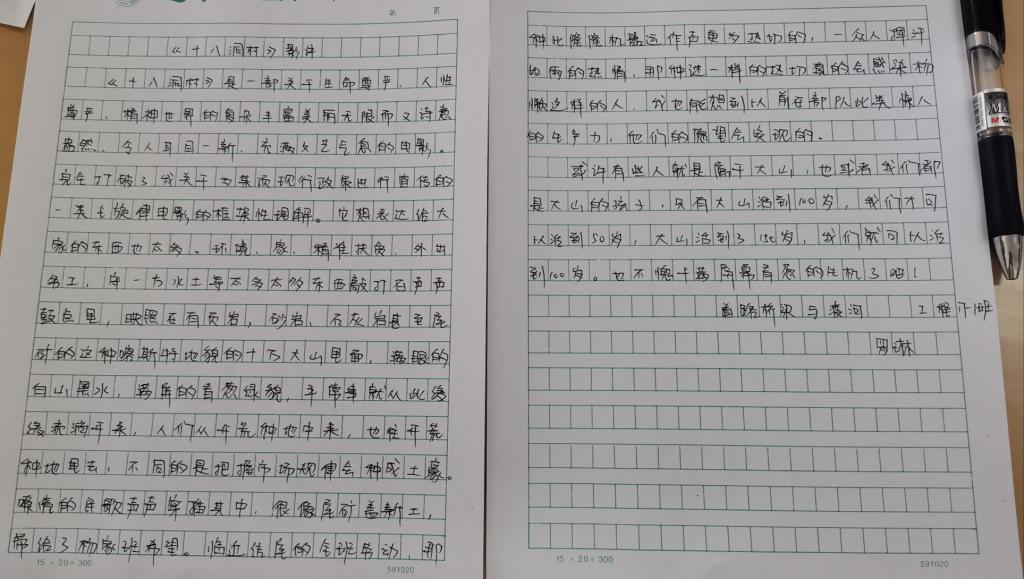 第 页
《十八洞村》影评
《十八洞村》是一部关于生命尊严、人性
尊严、精神世界的复杂丰富美丽无限而又诗意
盎然、令人耳目一新、充满文艺气息的电影。
完全打破了我关于为某项现行政策进行宣传的
一类主旋律电影的框架性理解。它想表达给大
家的东西也太多。环境、家、精准扶贫、外出
务工，守一方水土等太多太多东西敲打在声声
鼓点里，映照在有页岩，砂岩、石灰岩甚至尾
矿的这种喀斯特地貌的十万大山里面，养眼的
白山黑水，养身的青葱绿貌，平常事就从此缓
缓流淌开来，人们从开荒种地中来，也往开荒
种地里去，不同的是把握市场规律会种成土豪。
嘹亮的民歌声声穿插其中，很像尾矿盖新土，
带给了杨家班希望。临近结尾的全班劳动，那
15 × 20 = 300
591020
种比隆隆机器运作声更为热切的，一众人挥汗
如雨的热情，那种过一样的热切真的会感染杨
懒这样的人，我也能想到以前在部队此类惊人
的生产力，他们的愿望会实现的。
或许有些人就是属于大山，也或者我们都
是大山的孩子，只有大山活到100岁，我们才可
以活到50岁，大山活到了150岁，我们就可以活
到100岁。也不愧于满屏幕青葱的生机了吧！
道路桥梁与渡河 工程 17-1班
罗琳
15 × 20 = 300
591020